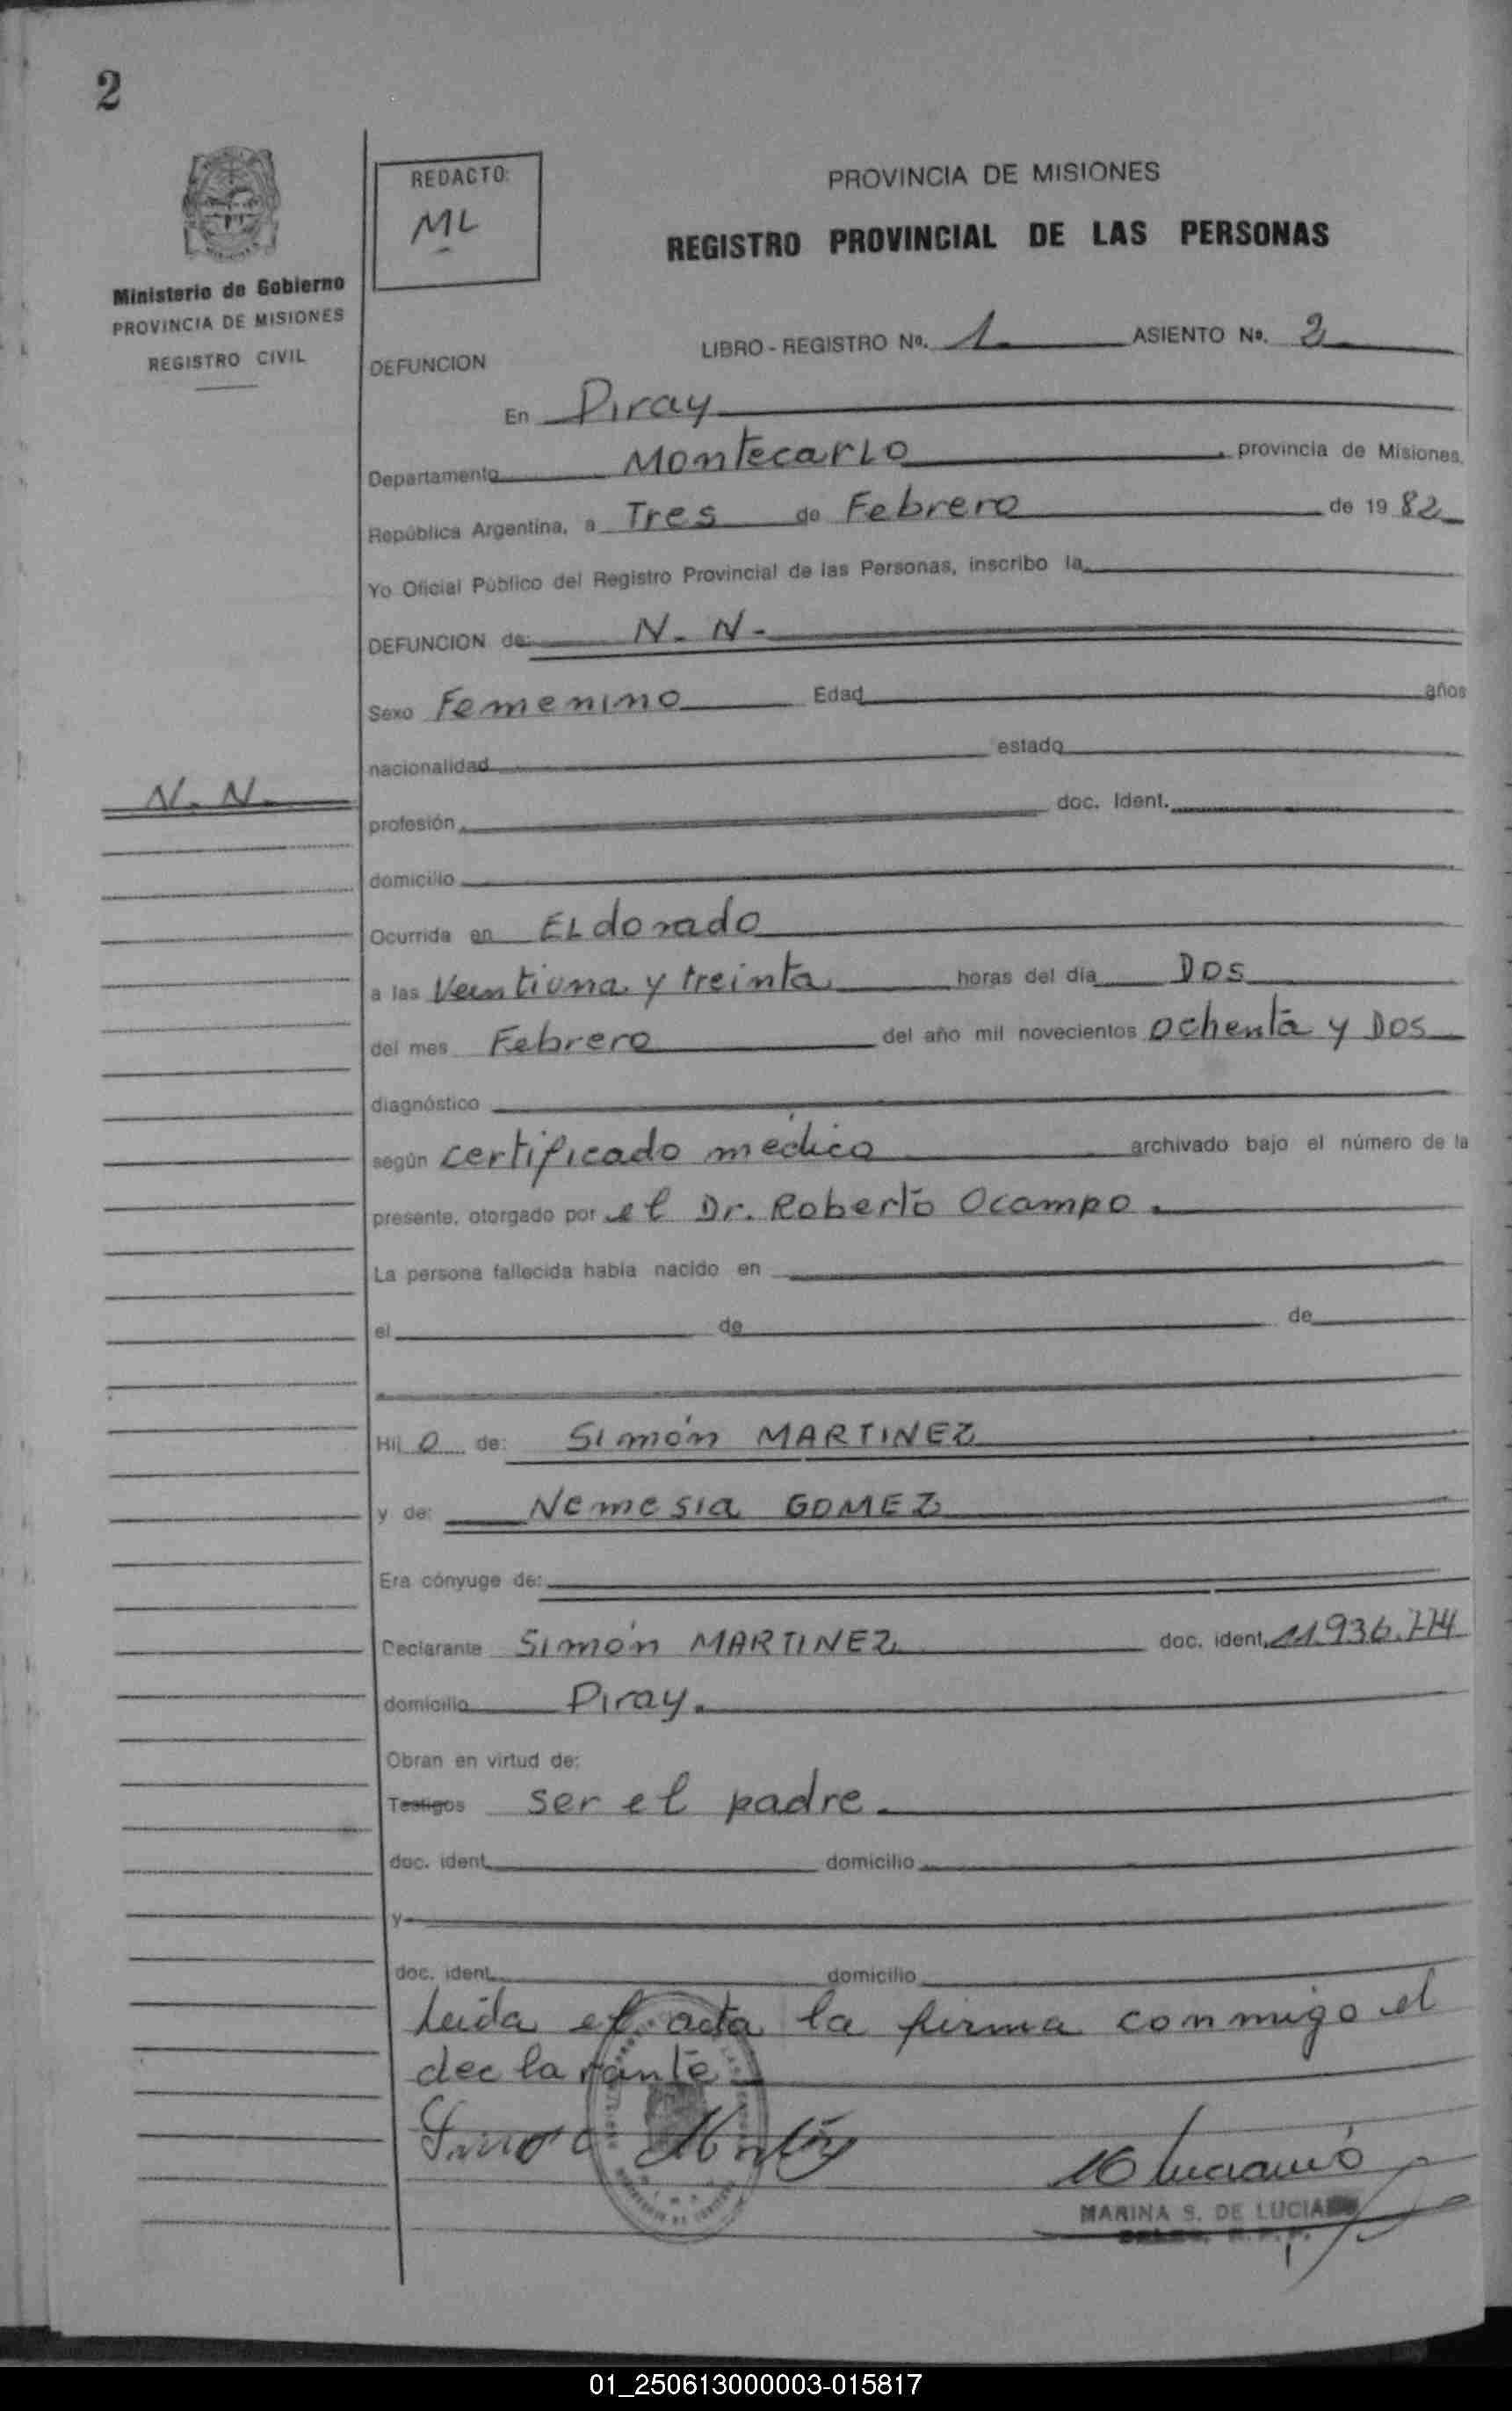 2
REDACTO:
ML
Ministerio de Gobierno
PROVINCIA DE MISIONES
REGISTRO CIVIL
PROVINCIA DE MISIONES
REGISTRO PROVINCIAL DE LAS PERSONAS
LIBRO - REGISTRO No. 1 ASIENTO No. 2
DEFUNCION
En Piray
Departamento Montecarlo, provincia de Misiones,
República Argentina, a Tres de Febrero de 1982
Yo Oficial Público del Registro Provincial de las Personas, inscribo la
DEFUNCION de: N. N.
Sexo Femenino Edad años
nacionalidad estado
N. N.
profesión doc. Ident.
domicilio
Ocurrida en Eldorado
a las Veintiuna y treinta horas del día Dos
del mes Febrero del año mil novecientos ochenta y Dos
diagnóstico
según certificado médico archivado bajo el número de la
presente, otorgado por el Dr. Roberto Ocampo.
La persona fallecida había nacido en
el de de
Hij o de: Simón MARTINEZ
y de: Nemesia GOMEZ
Era cónyuge de:
Declarante Simón MARTINEZ doc. ident. 11.936.774
domicilio Piray.
Obran en virtud de:
Testigos ser el padre.
doc. ident. domicilio
y
doc. ident. domicilio
Leida el acta la firma conmigo el
declarante
MARINA S. DE LUCIA
01_250613000003-015817